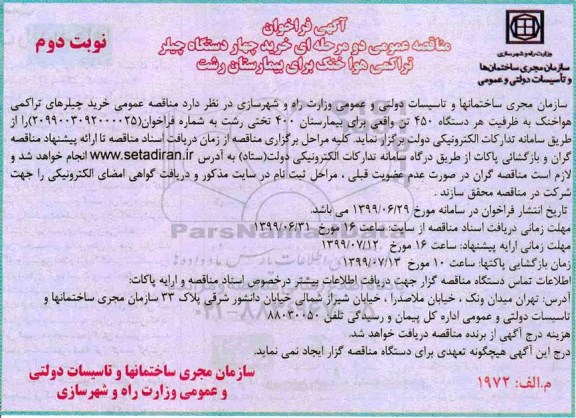 آگهی فراخوان
مناقصه عمومی دو مرحله ای خرید چهار دستگاه چیلر
تراکمی هوا خنک برای بیمارستان رشت
نوبت دوم
وزارت راه و شهرسازی
سازمان مجری ساختمانها
و تاسیسات دولتی و عمومی
سازمان مجری ساختمانها و تاسیسات دولتی و عمومی وزارت راه و شهرسازی در نظر دارد مناقصه عمومی خرید چیلرهای تراکمی
هواخنک به ظرفیت هر دستگاه ۴۵۰ تن واقعی برای بیمارستان ۴۰۰ تختی رشت به شماره فراخوان(۲۰۹۹۰۰۳۰۹۲۰۰۰۰۲۵)را از
طریق سامانه تدارکات الکترونیکی دولت برگزار نماید. کلیه مراحل برگزاری مناقصه از زمان دریافت اسناد مناقصه تا ارائه پیشنهاد مناقصه
گران و بازگشائی پاکات از طریق درگاه سامانه تدارکات الکترونیکی دولت(ستاد) به آدرس www.setadiran.ir انجام خواهد شد و
لازم است مناقصه گران در صورت عدم عضویت قبلی ، مراحل ثبت نام در سایت مذکور و دریافت گواهی امضای الکترونیکی را جهت
شرکت در مناقصه محقق سازند .
تاریخ انتشار فراخوان در سامانه مورخ ۱۳۹۹/۰۶/۲۹ می باشد.
مهلت زمانی دریافت اسناد مناقصه از سایت: ساعت ۱۶ مورخ ۱۳۹۹/۰۶/۳۱
مهلت زمانی ارایه پیشنهاد: ساعت ۱۶ مورخ ۱۳۹۹/۰۷/۱۲
زمان بازگشایی پاکتها: ساعت ۱۰ مورخ ۱۳۹۹/۰۷/۱۳
اطلاعات تماس دستگاه مناقصه گزار جهت دریافت اطلاعات بیشتر درخصوص اسناد مناقصه و ارایه پاکات:
آدرس: تهران میدان ونک ، خیابان ملاصدرا ، خیابان شیراز شمالی خیابان دانشور شرقی پلاک ۳۳ سازمان مجری ساختمانها و
تاسیسات دولتی و عمومی اداره کل پیمان و رسیدگی تلفن ۸۸۰۳۰۰۵۰
هزینه درج آگهی از برنده مناقصه دریافت خواهد شد.
درج این آگهی هیچگونه تعهدی برای دستگاه مناقصه گزار ایجاد نمی نماید.
سازمان مجری ساختمانها و تاسیسات دولتی
و عمومی وزارت راه و شهرسازی
م.الف: ۱۹۷۲
ParsNamadData